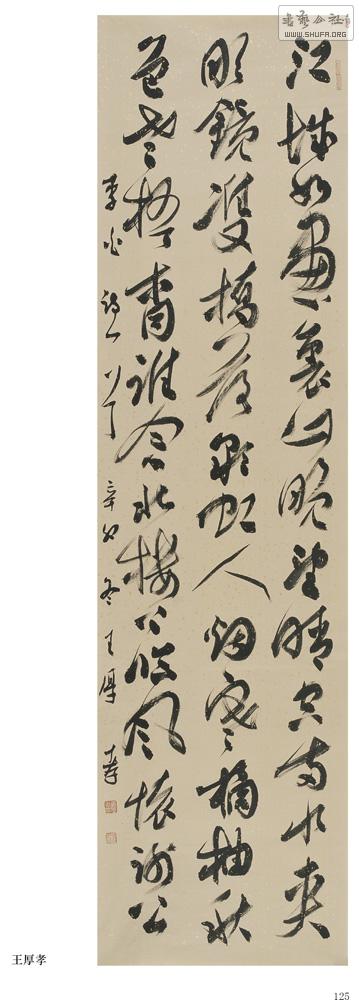 书艺公社
WWW.SHUFA.ORG
江城如畫裏山晚望晴空兩水夾
明鏡雙橋落彩虹人烟寒橘柚秋
色老梧桐誰念北樓上临風懷謝公
李白詩一首 辛卯冬 王厚孝
王厚孝
125